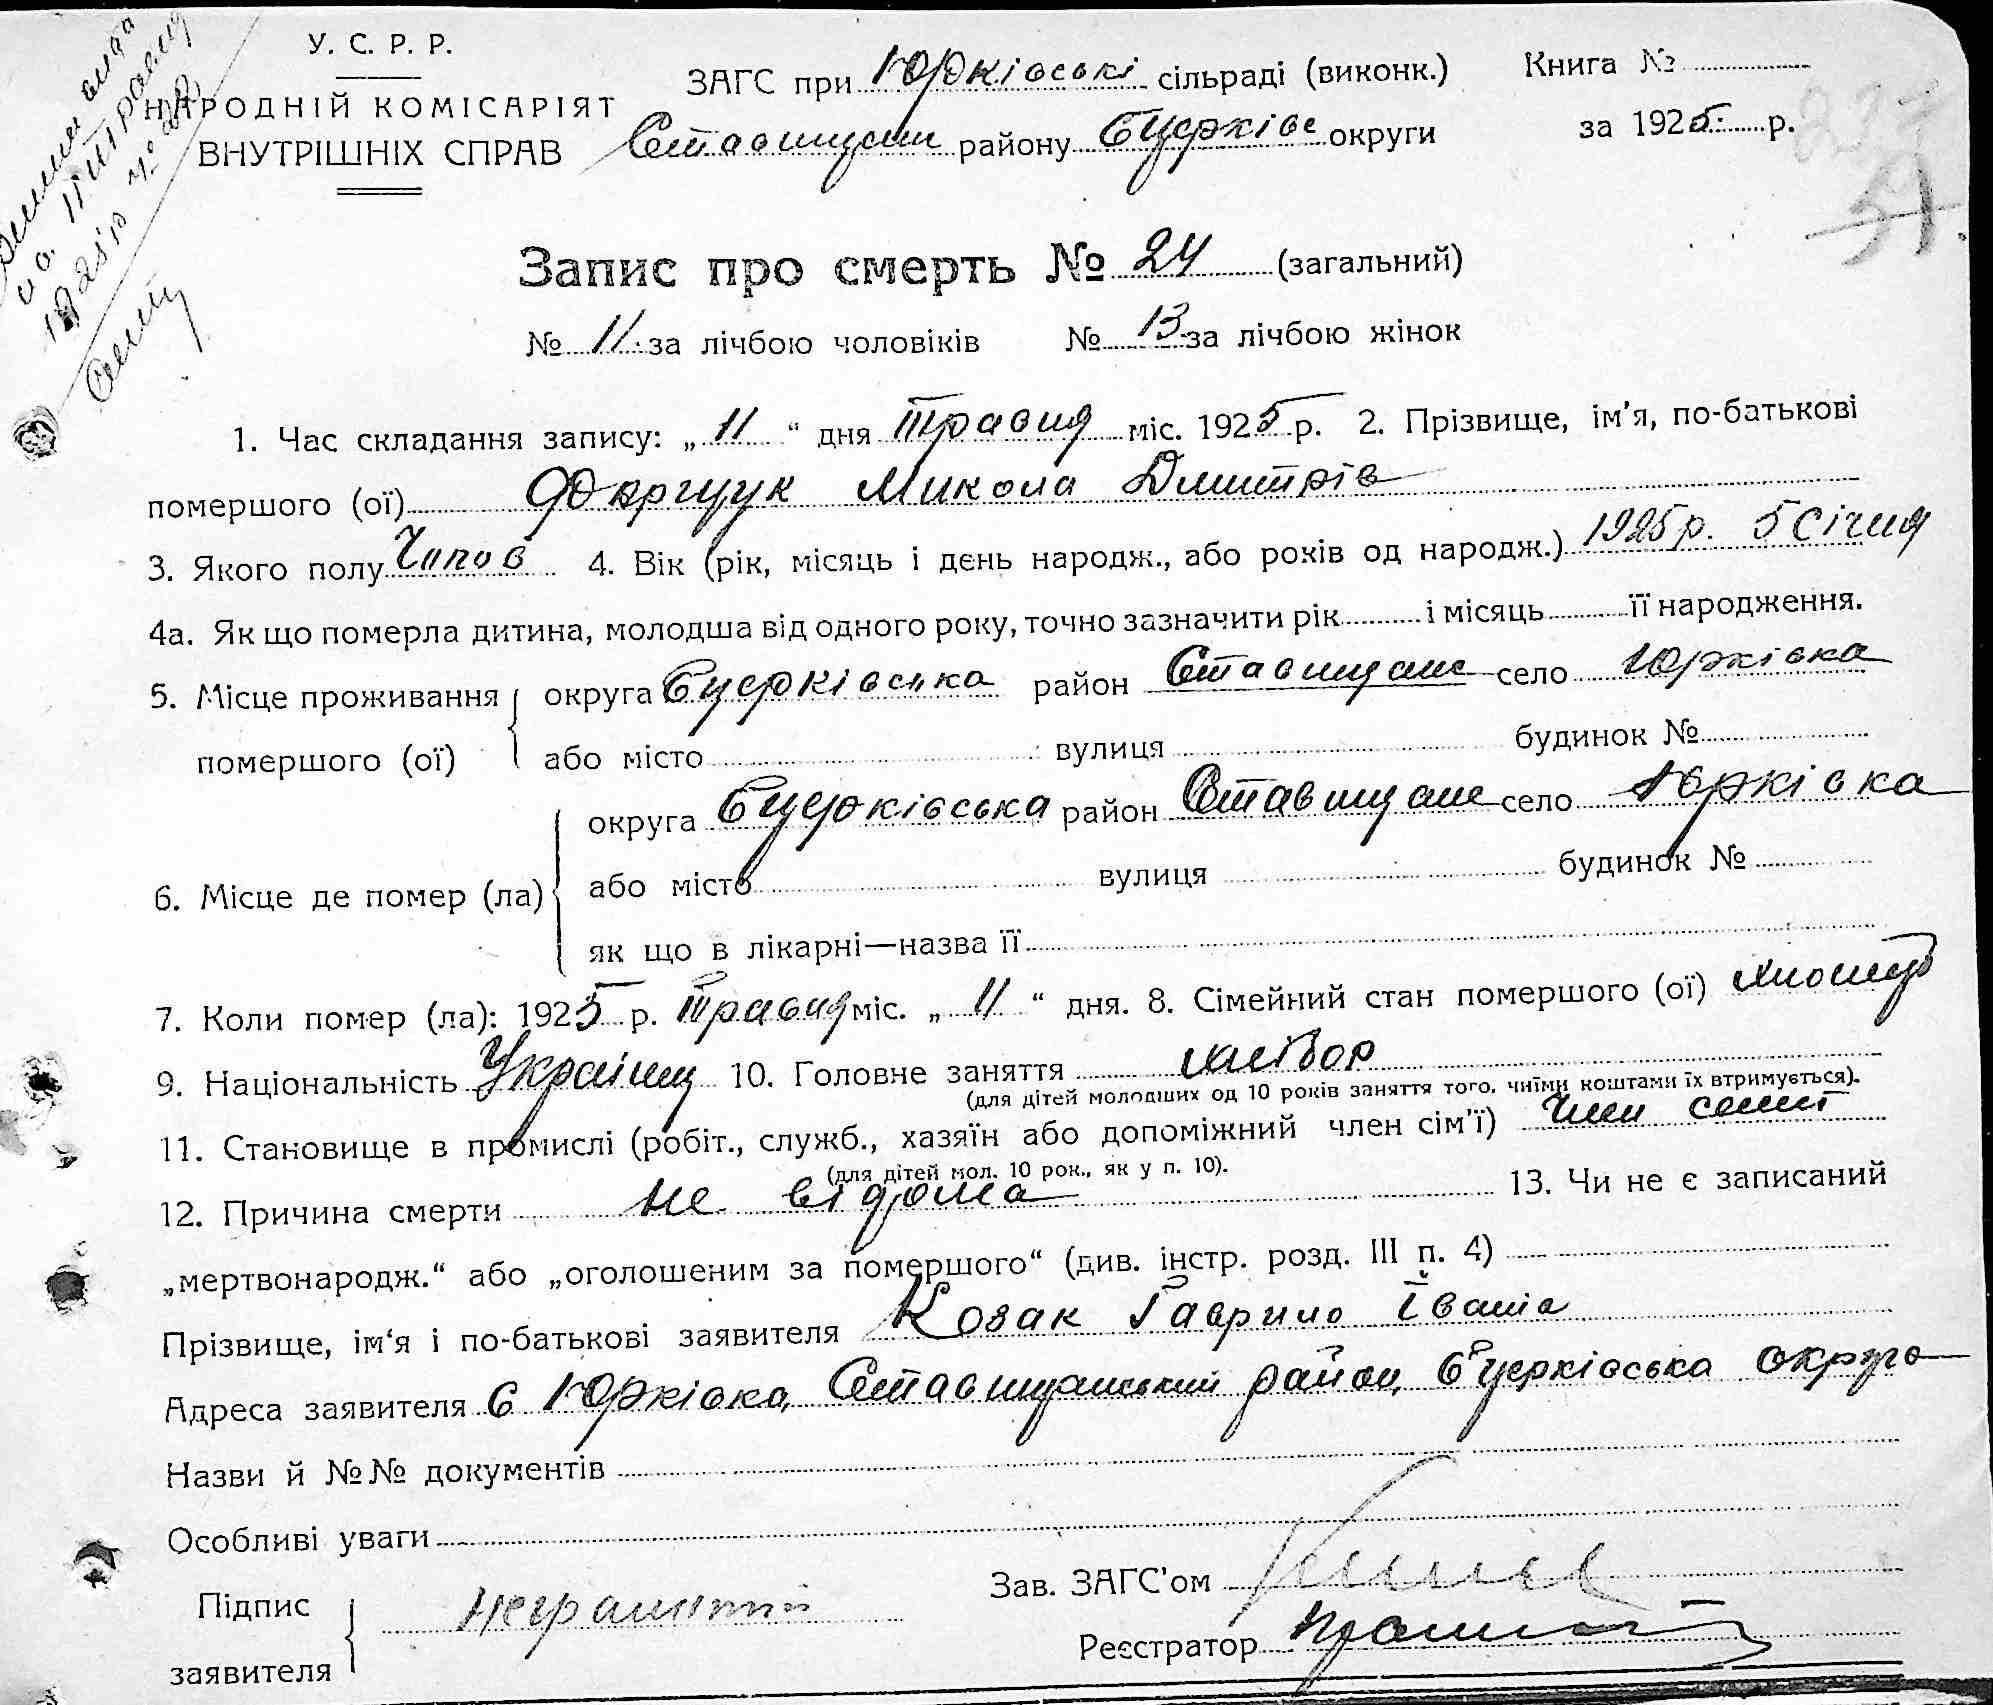 У. С. Р. Р.
НАРОДНІЙ КОМІСАРІЯТ
ВНУТРІШНІХ СПРАВ
ЗАГС при Юрківські сільраді (виконк.) Книга №
Ставищан району Бцерківс округи за 1925 р.
Запис про смерть № 24 (загальний)
№ 11 за лічбою чоловіків № 13 за лічбою жінок
1. Час складання запису: „ 11 “ дня Травня міс. 1925 р. 2. Прізвище, ім'я, по-батькові
помершого (ої) Микола Дмитрів
3. Якого полу Чолов 4. Вік (рік, місяць і день народж., або років од народж.) 1925 р. 5 Січня
4а. Як що померла дитина, молодша від одного року, точно зазначити рік і місяць її народження.
5. Місце проживання помершого (ої) округа Бцерківська район Ставищане село Юрківка
або місто вулиця будинок №
6. Місце де помер (ла) округа Бцерківська район Ставищане село Юрківка
або місто вулиця будинок №
як що в лікарні—назва її
7. Коли помер (ла): 1925 р. Травня міс. „ 11 “ дня. 8. Сімейний стан помершого (ої)
9. Національність Українц 10. Головне заняття хлібор
(для дітей молодших од 10 років заняття того, чиїми коштами їх втримується).
11. Становище в промислі (робіт., служб., хазяїн або допоміжний член сім'ї) Член семї
(для дітей мол. 10 рок., як у п. 10).
12. Причина смерти не відома 13. Чи не є записаний
„мертвонародж.“ або „оголошеним за помершого“ (див. інстр. розд. III п. 4)
Прізвище, ім'я і по-батькові заявителя Козак Гаврило Іванів
Адреса заявителя С Юрківка, Ставищанський район, Бцерківська округа
Назви й №№ документів
Особливі уваги
Підпис заявителя неграмотній Зав. ЗАГС'ом
Реєстратор